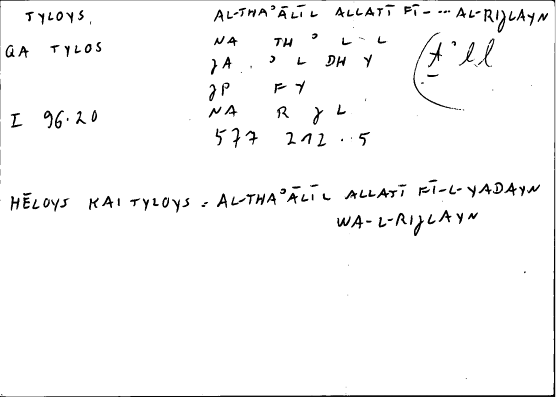 TYLOYS, AL-THAʾĀLĪL ALLATĪ FĪ- ... AL-RIJLAYN
QA TYLOS NA TH ʾ L L (ṯʾll
JA . ʾ L DH Y
JP F Y
I 96.20 NA R J L
577 212..5
HĒLOYS KAI TYLOYS = AL-THAʾĀLĪL ALLATĪ FĪ-L-YADAYN
WA-L-RIJLAYN